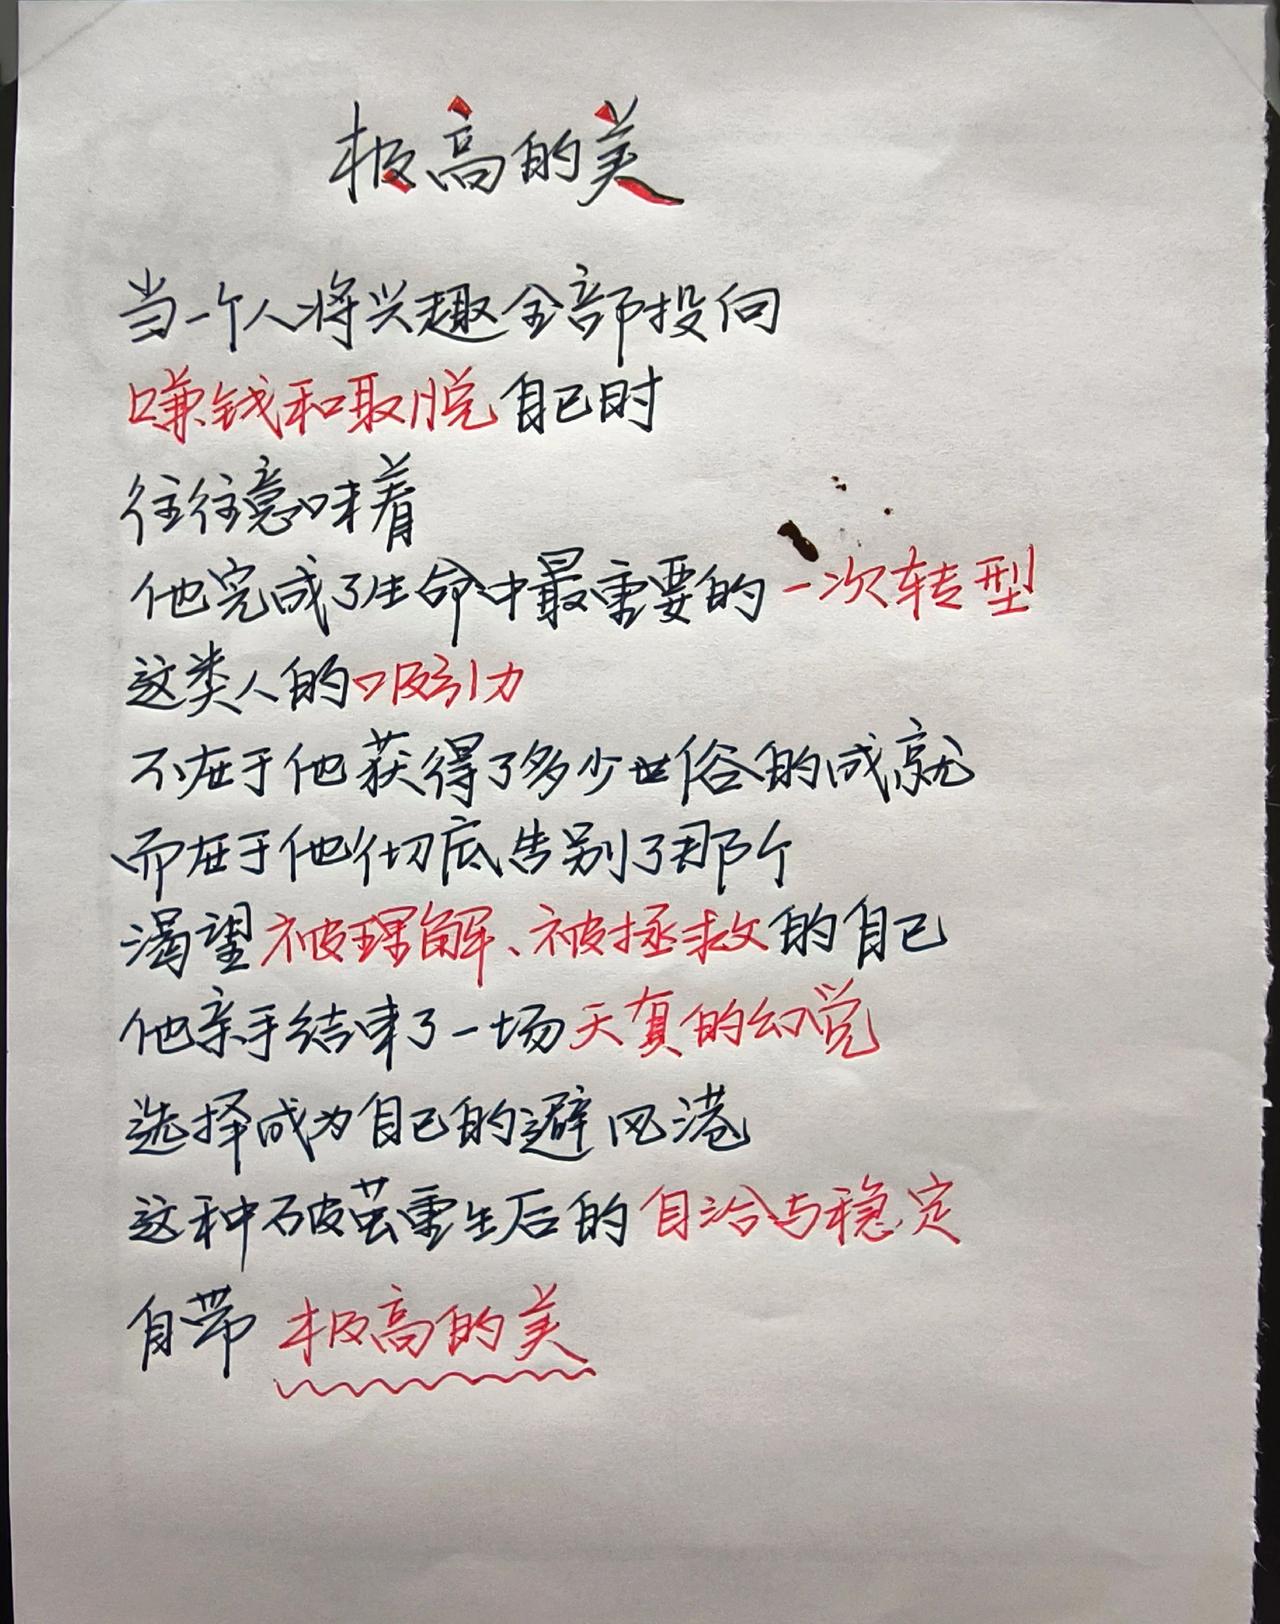 极高的美
当一个人将兴趣全部投向
赚钱和取脱自己时
往往意味着
他完成了生命中最重要的一次转型
这类人的吸引力
不在于他获得了多少世俗的成就
而在于他彻底告别了那个
渴望被理解、被拯救的自己
他亲手结束了一场天真的幻觉
选择成为自己的避风港
这种破茧重生后的自洽与稳定
自带极高的美